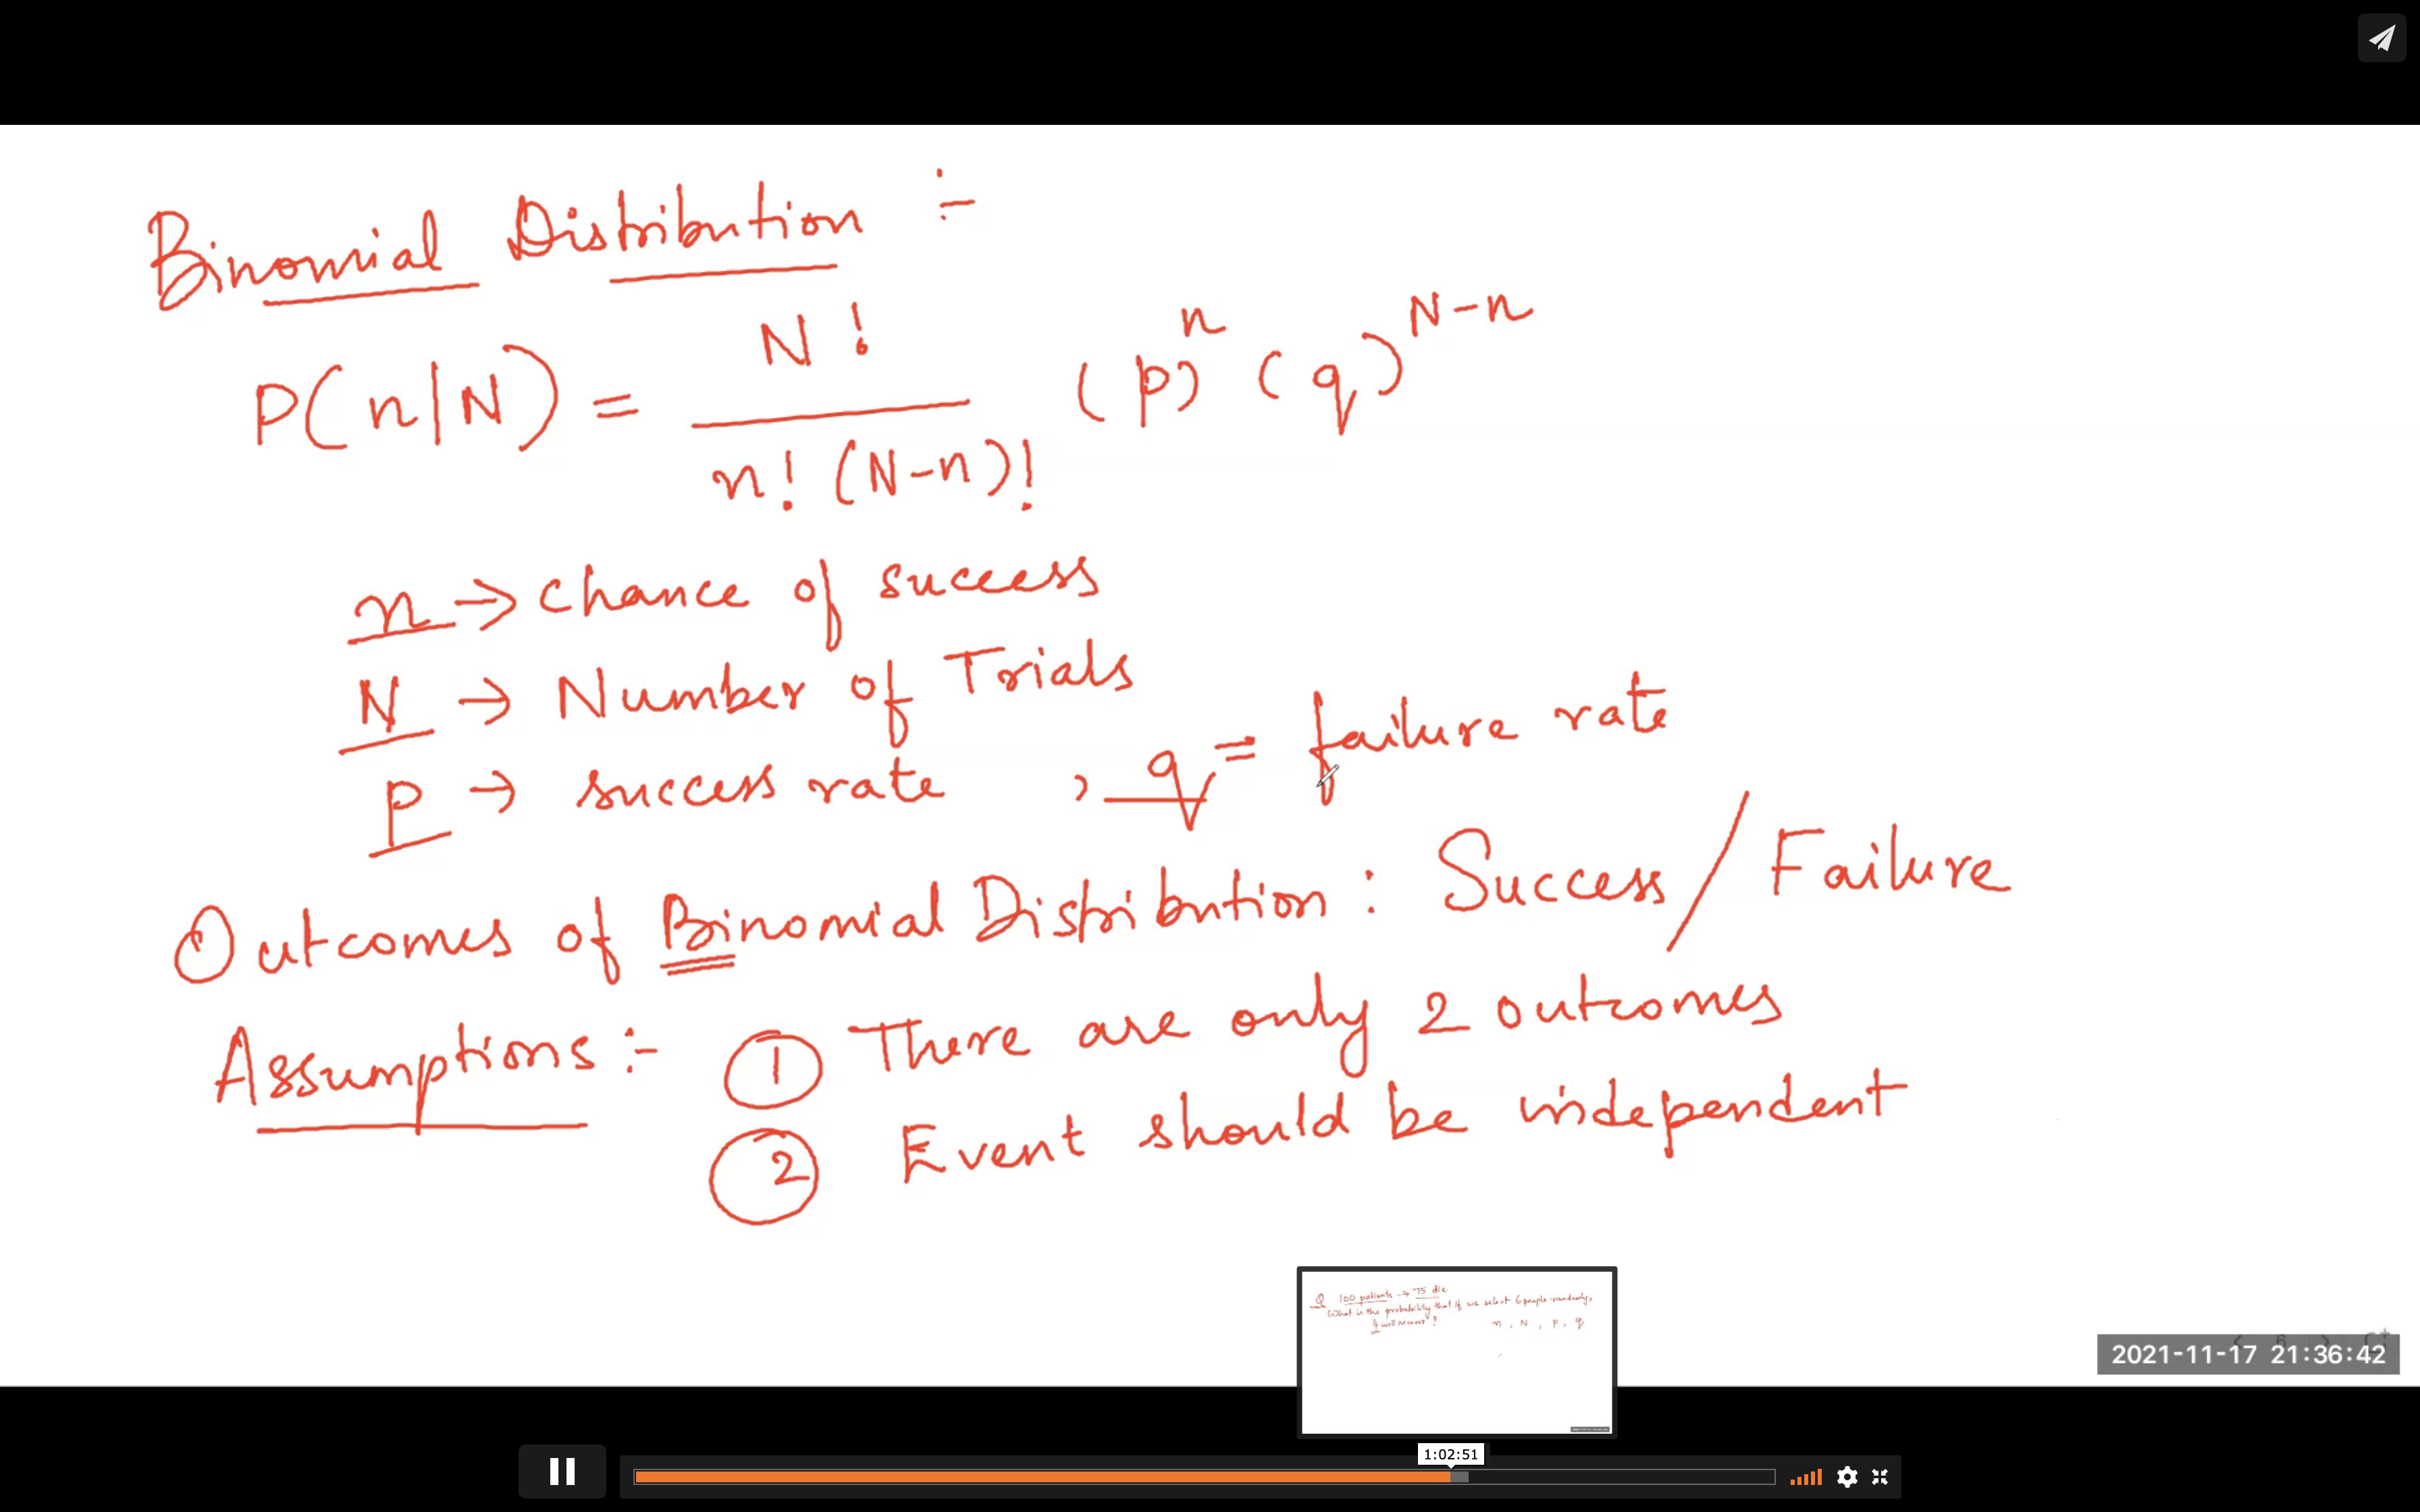 Binomial Distribution :-
P(n|N) = N! / n! (N-n)! (p)^n (q)^N-n
n → chance of success
N → Number of Trials
P → success rate , q = failure rate
Outcomes of Binomial Distribution : Success / Failure
Assumptions :- ① There are only 2 outcomes
② Event should be independent
Q 100 patients → 75 die
What is the probability that if we select 6 people randomly,
4 will recover?
n, N, P, q
2021-11-17 21:36:42
1:02:51